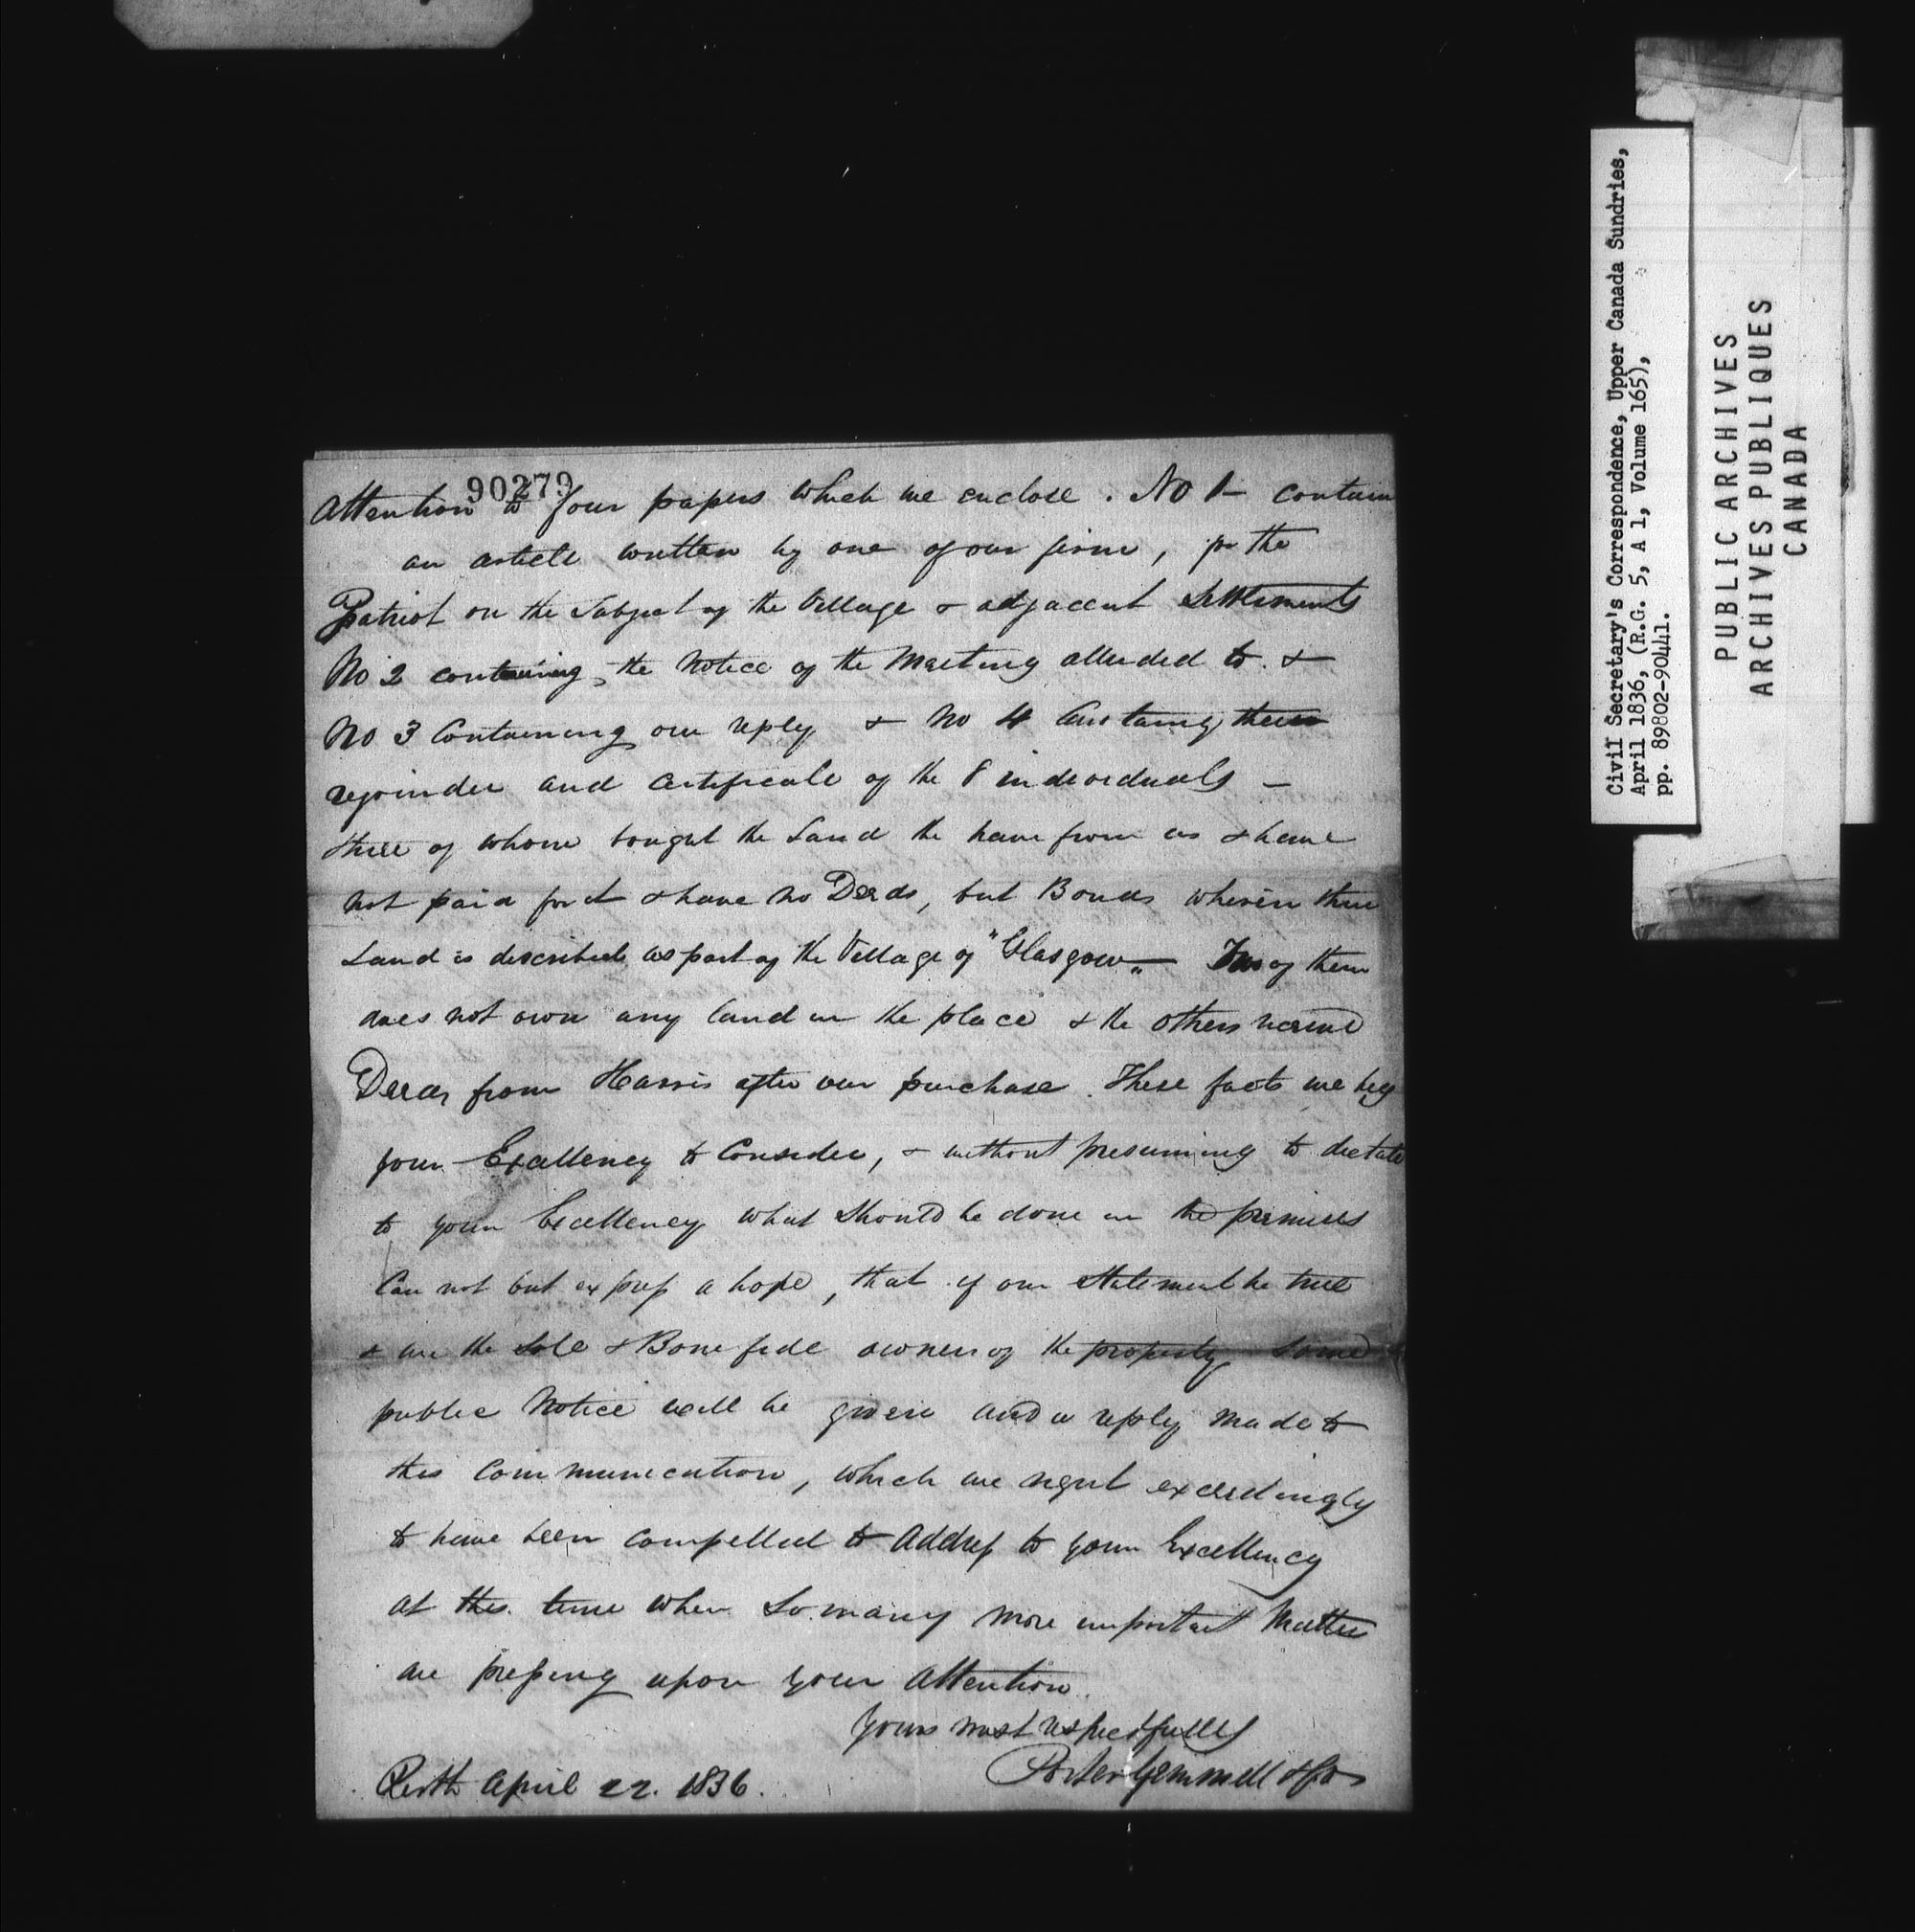 90279
Attention to four papers which we enclose. No 1 - contain
an article written by one of our firm, for the
Patriot on the Subject of the Village & adjacent Settlements
No 2 containing the Notice of the Meeting alluded to. &
No 3 Containing our reply & No 4 Containg their
rejoinder and Certificate of the 8 individuals -
three of whom bought the Land the have from us & have
not paid for it & have no Deeds, but Bonds wherein their
Land is described as part of the Village of "Glasgow" - of them
does not own any land in the place & the others received
Deeds from Harris after our purchase. These facts we beg
your Excellency to Consider, & without presuming to dictate
to your Excellency what Should be done in the premises
Can not but express a hope, that if our Statement be true
& are the Sole & Bone fide owners of the property Some
public Notice will be given and a reply made to
this Communication, which we regret exceedingly
to have been compelled to Address to your Excellency
at this time when So many more important Matters
are pressing upon your Attention.
Yours most respectfully
Porter Gemmell & Co
Perth April 22. 1836.
Civil Secretary's Correspondence, Upper Canada Sundries,
April 1836, (R.G. 5, A 1, Volume 165),
pp. 89802-90441.
PUBLIC ARCHIVES
ARCHIVES PUBLIQUES
CANADA